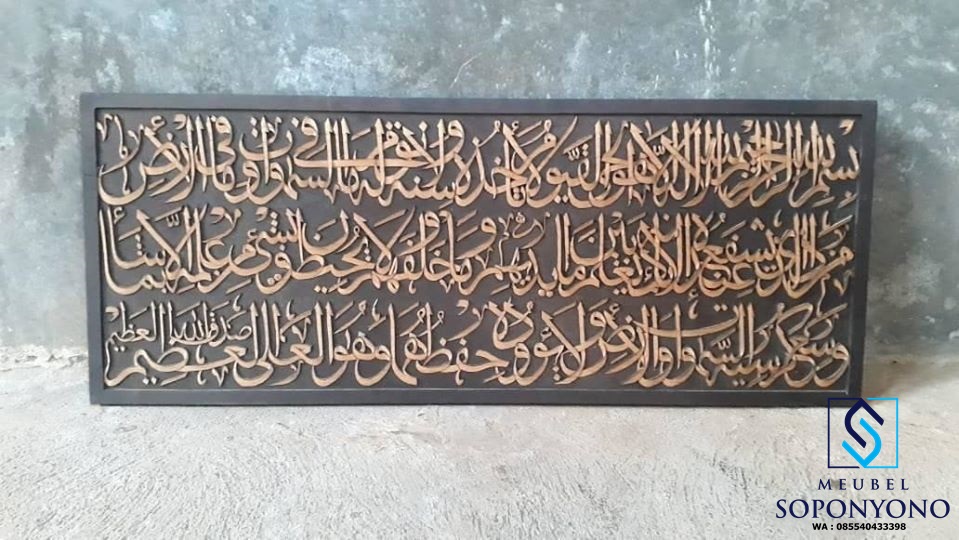 بسم الله الرحمن الرحيم الله لا إله إلا هو الحي القيوم لا تأخذه سنة ولا نوم له ما في السموات وما في الأرض
من ذا الذي يشفع عنده إلا بإذنه يعلم ما بين أيديهم وما خلفهم ولا يحيطون بشيء من علمه إلا بما شاء
وسع كرسيه السموات والأرض ولا يؤوده حفظهما وهو العلي العظيم صدق الله العظيم
MEUBEL
SOPONYONO
WA : 085540433398